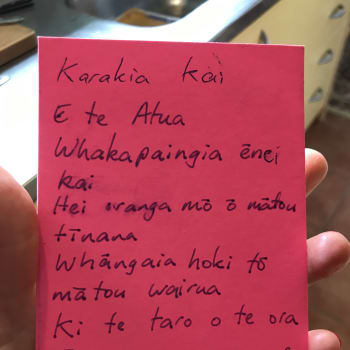 Karakia kai
E te Atua
Whakapaingia ēnei
kai
Hei oranga mō ō mātou
tīnana
Whāngaia hoki tō
mātou wairua
Ki te taro o te ora